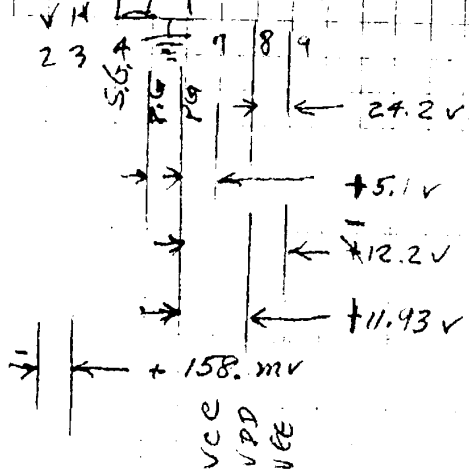 V H
2 3 4 7 8 9
S.G. P.G PG
24.2 v
+5.1 v
12.2 v
+11.93 v
+ 158. mv
VCC
VDD
VEE